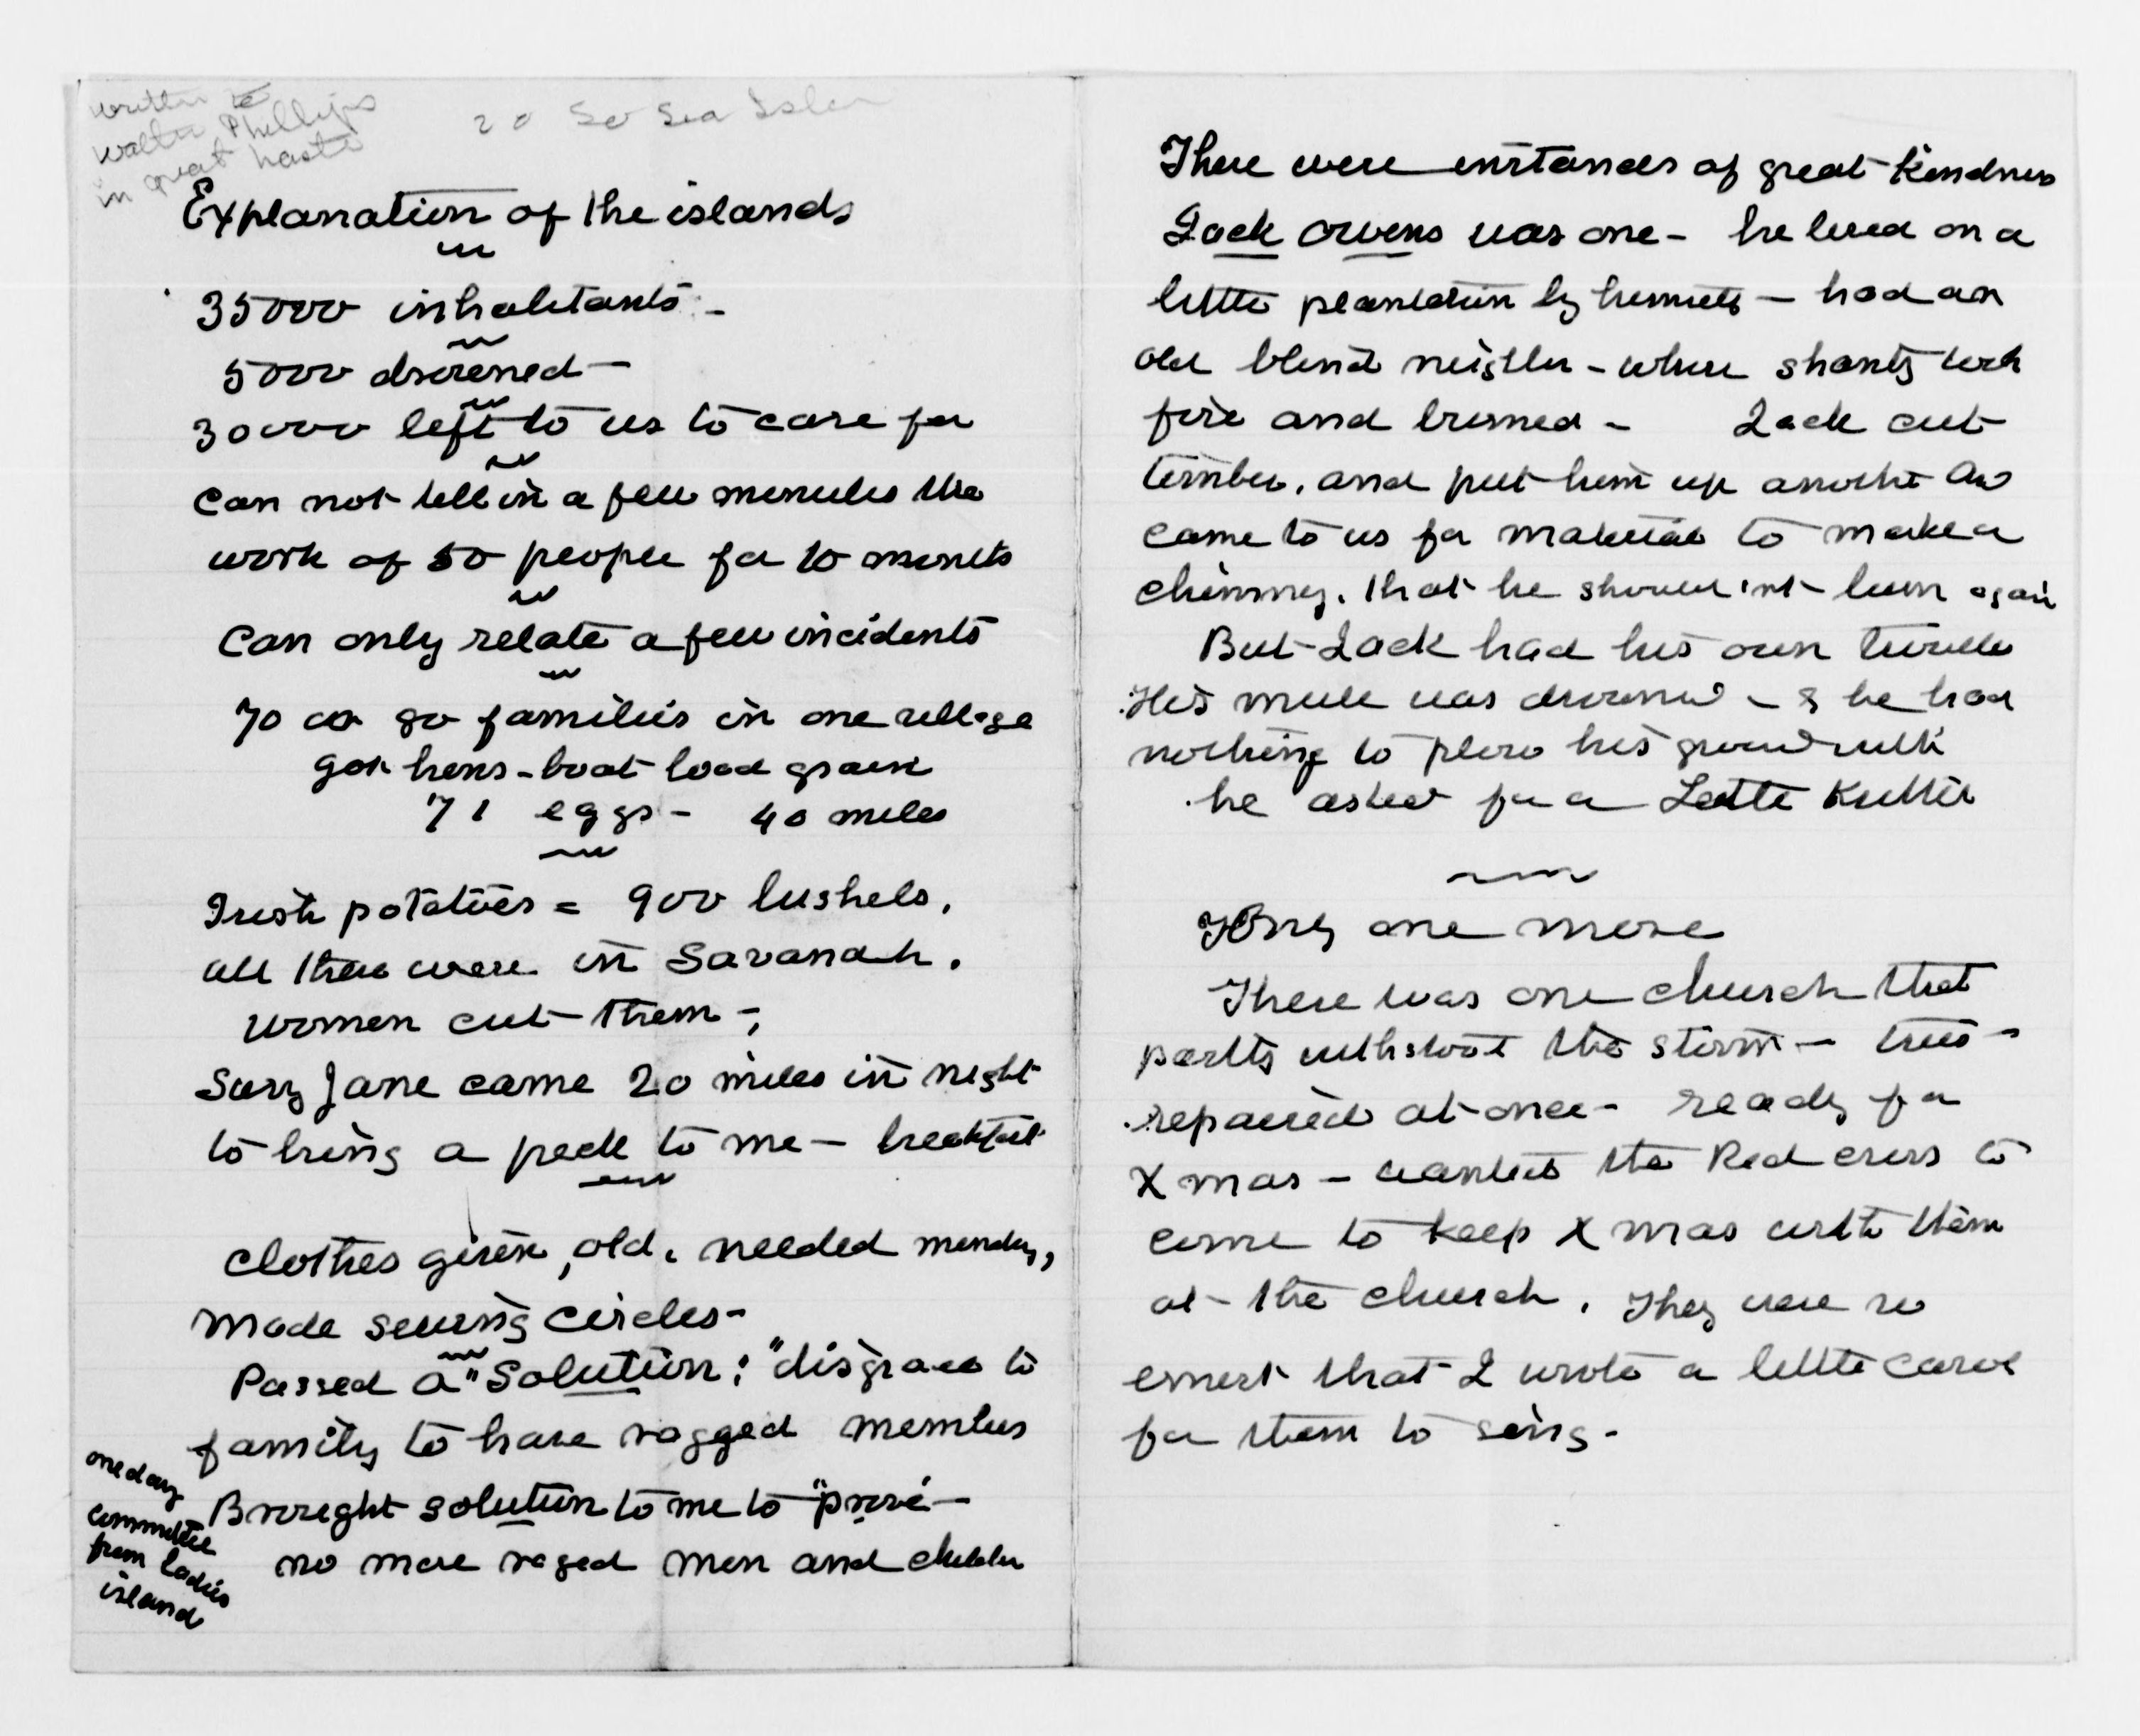 written to
Walter Phillips
in great haste
20 So Sea Islan
Explanation of the islands
35000 inhabitants -
5000 drowned -
30000 left to us to care for
Can not tell in a few minutes the
work of 50 people for 10 months
Can only relate a few incidents
70 or 80 families in one village
got hens - boat load grain
71 eggs - 40 miles
Irish potatoes = 900 bushels.
all there were in Savanah.
Women cut them -
Sary Jane came 20 miles in night
to bring a peck to me - breakfast
Clothes given, old, needed mending,
Made sewing circles -
Passed a "Solution: "disgrace to
family to have ragged members
one day
committee
from Ladies
island
Brought solution to me to "prove -
no more raged men and children
There were instances of great kindness
Jack Owens was one - he lived on a
little plantation by himself - had an
old blind neighbor - whose shanty took
fire and burned - Jack cut
timber. and put him up another and
came to us for material to make a
chimney. that he should'nt burn again
But Jack had his own trouble
His mule was drowned - & he had
nothing to plow his ground with
he asked for a Little Kritter
Only one more
There was one church that
partly withstood the storm - trees -
repaired at once - ready for
X mas - wanted the Red cross to
come to keep X mas with them
at the church. They were so
ernest that I wrote a little carol
for them to sing -